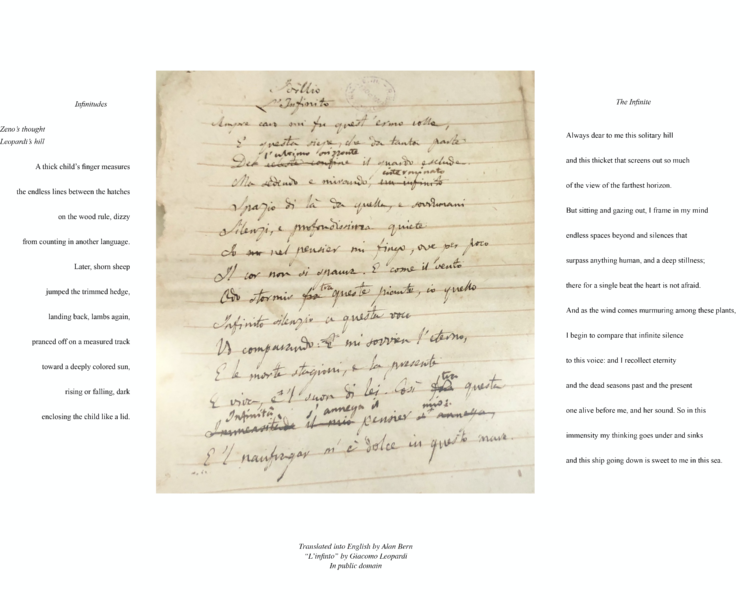 Infinitudes
Zeno's thought
Leopardi's hill
A thick child's finger measures
the endless lines between the hatches
on the wood rule, dizzy
from counting in another language.
Later, shorn sheep
jumped the trimmed hedge,
landing back, lambs again,
pranced off on a measured track
toward a deeply colored sun,
rising or falling, dark
enclosing the child like a lid.
Idillio
L'Infinito
Sempre caro mi fu quest'ermo colle,
E questa siepe, che da tanta parte
l'ultimo orizzonte
Del celeste confine il guardo esclude.
interminato
Ma sedendo e mirando, un infinito
Spazio di là da quella, e sovrumani
Silenzi, e profondissima quiete
Io nel pensier mi fingo, ove per poco
Il cor non si spaura. E come il vento
tra
Odo stormir fra queste piante, io quello
Infinito silenzio a questa voce
Vo comparando: E mi sovvien l'eterno,
E le morte stagioni, e la presente
E viva, e 'l suon di lei. Così fra questa
tra
Infinità s'annega il mio
Immensità il mio pensier s'annega,
E 'l naufragar m'è dolce in questo mare.
The Infinite
Always dear to me this solitary hill
and this thicket that screens out so much
of the view of the farthest horizon.
But sitting and gazing out, I frame in my mind
endless spaces beyond and silences that
surpass anything human, and a deep stillness;
there for a single beat the heart is not afraid.
And as the wind comes murmuring among these plants,
I begin to compare that infinite silence
to this voice: and I recollect eternity
and the dead seasons past and the present
one alive before me, and her sound. So in this
immensity my thinking goes under and sinks
and this ship going down is sweet to me in this sea.
Translated into English by Alan Bern
"L'infinto" by Giacomo Leopardi
In public domain